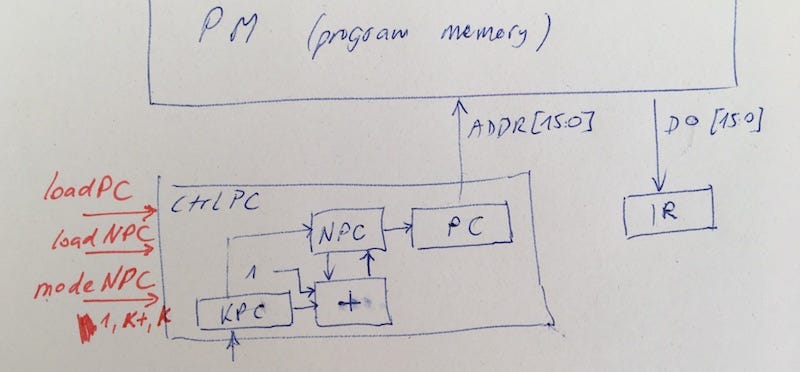 PM (program memory)
ADDR[15:0]
DO [15:0]
loadPC
CtrlPC
load NPC
NPC
PC
IR
mode NPC
1
KPC
+
1, K+, K